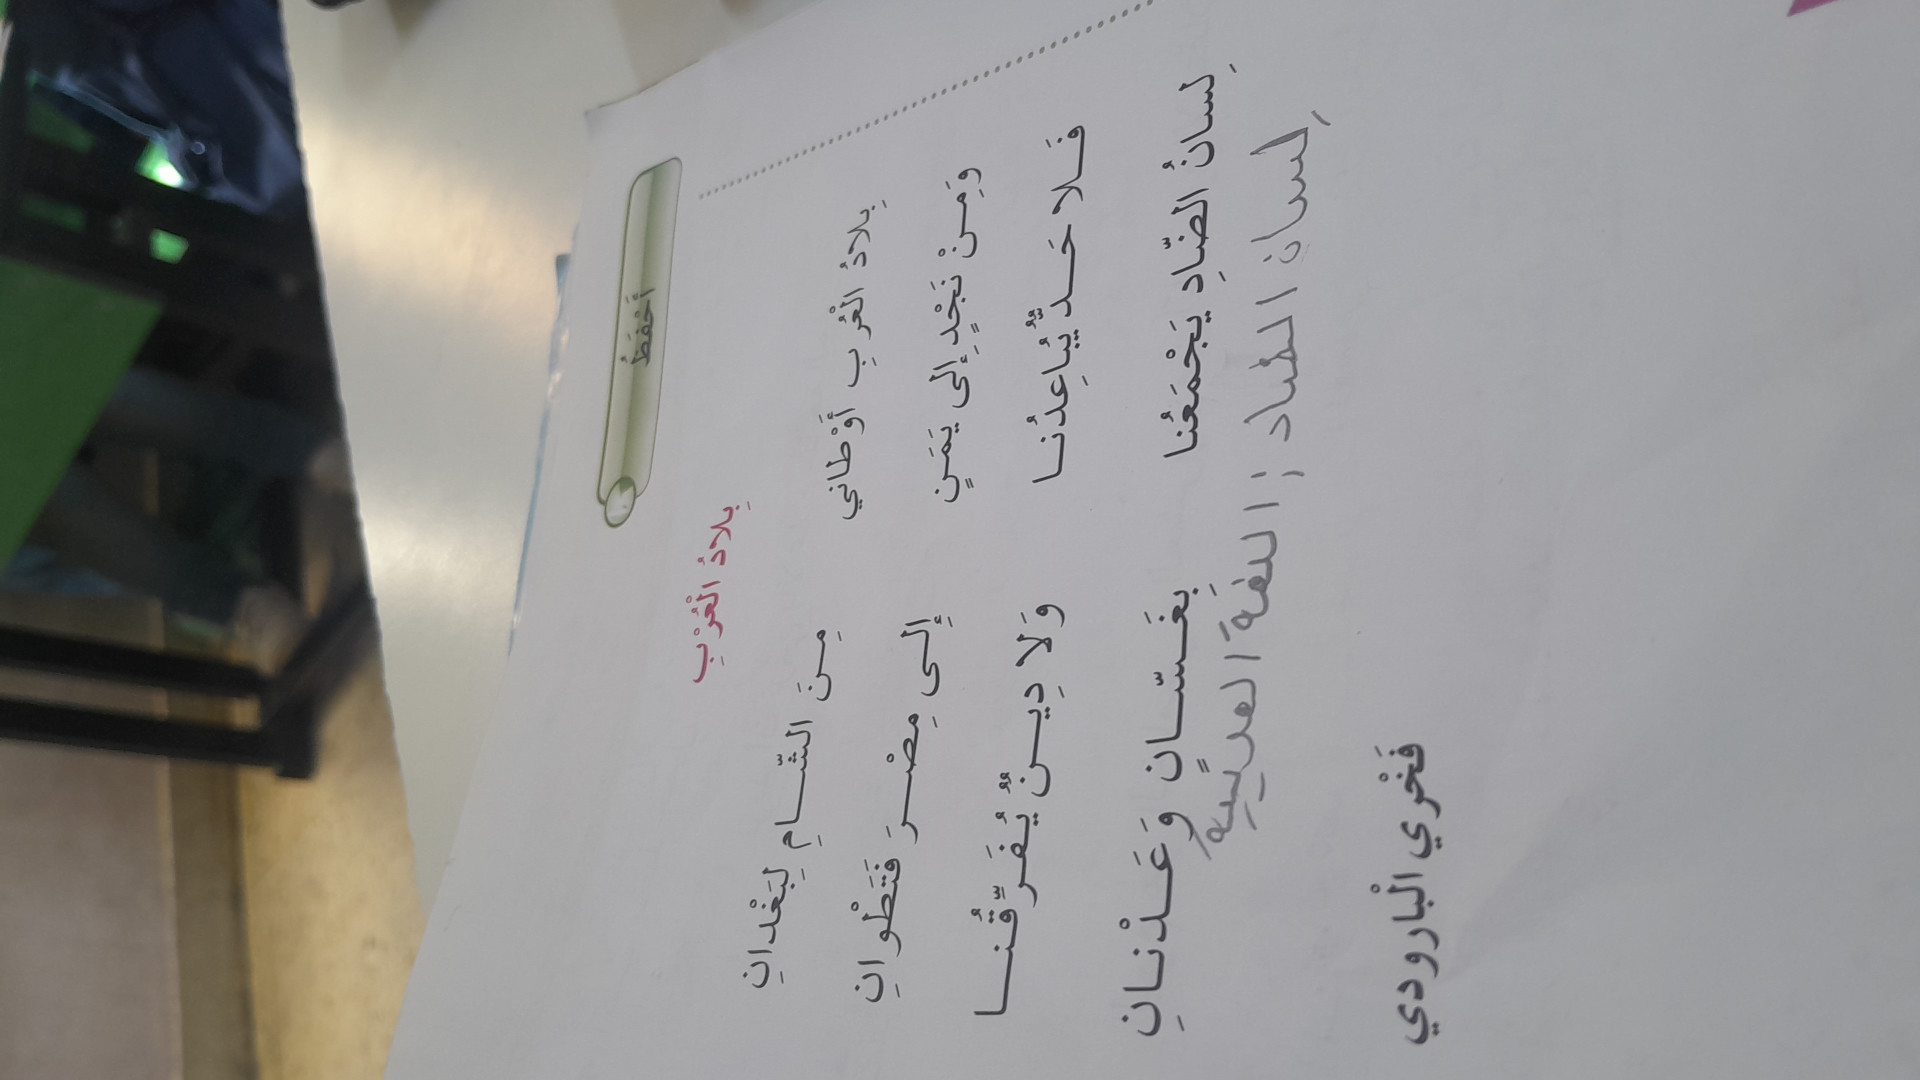 أَحْفَظُ
بِلادُ الْعُرْبِ
بِلادُ الْعُرْبِ أَوْطاني مِـنَ الشّـــامِ لِبَغْدانِ
وَمِـنْ نَجْدٍ إِلى يَمَـنٍ إِلـى مِصْـــرَ فَتَطْوانِ
فَـلا حَـــدٌّ يُباعِدُنـا وَلا ديـــنٌ يُفَرِّقُنـــا
لِسانُ الضّادِ يَجْمَعُنا بِغَسّـــانٍ وَعَـــدْنـانِ
لِسان الضاد: اللغة العربية
فَخْري الْبارودي